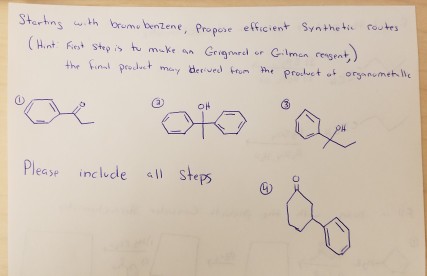 Starting with bromobenzene, Propose efficient Synthetic routes
(Hint First Step is to make an Grignard or Gilman reagent,)
the final product may derived from the product of organometallic
① O
② OH
③ OH
Please include all steps
④ O